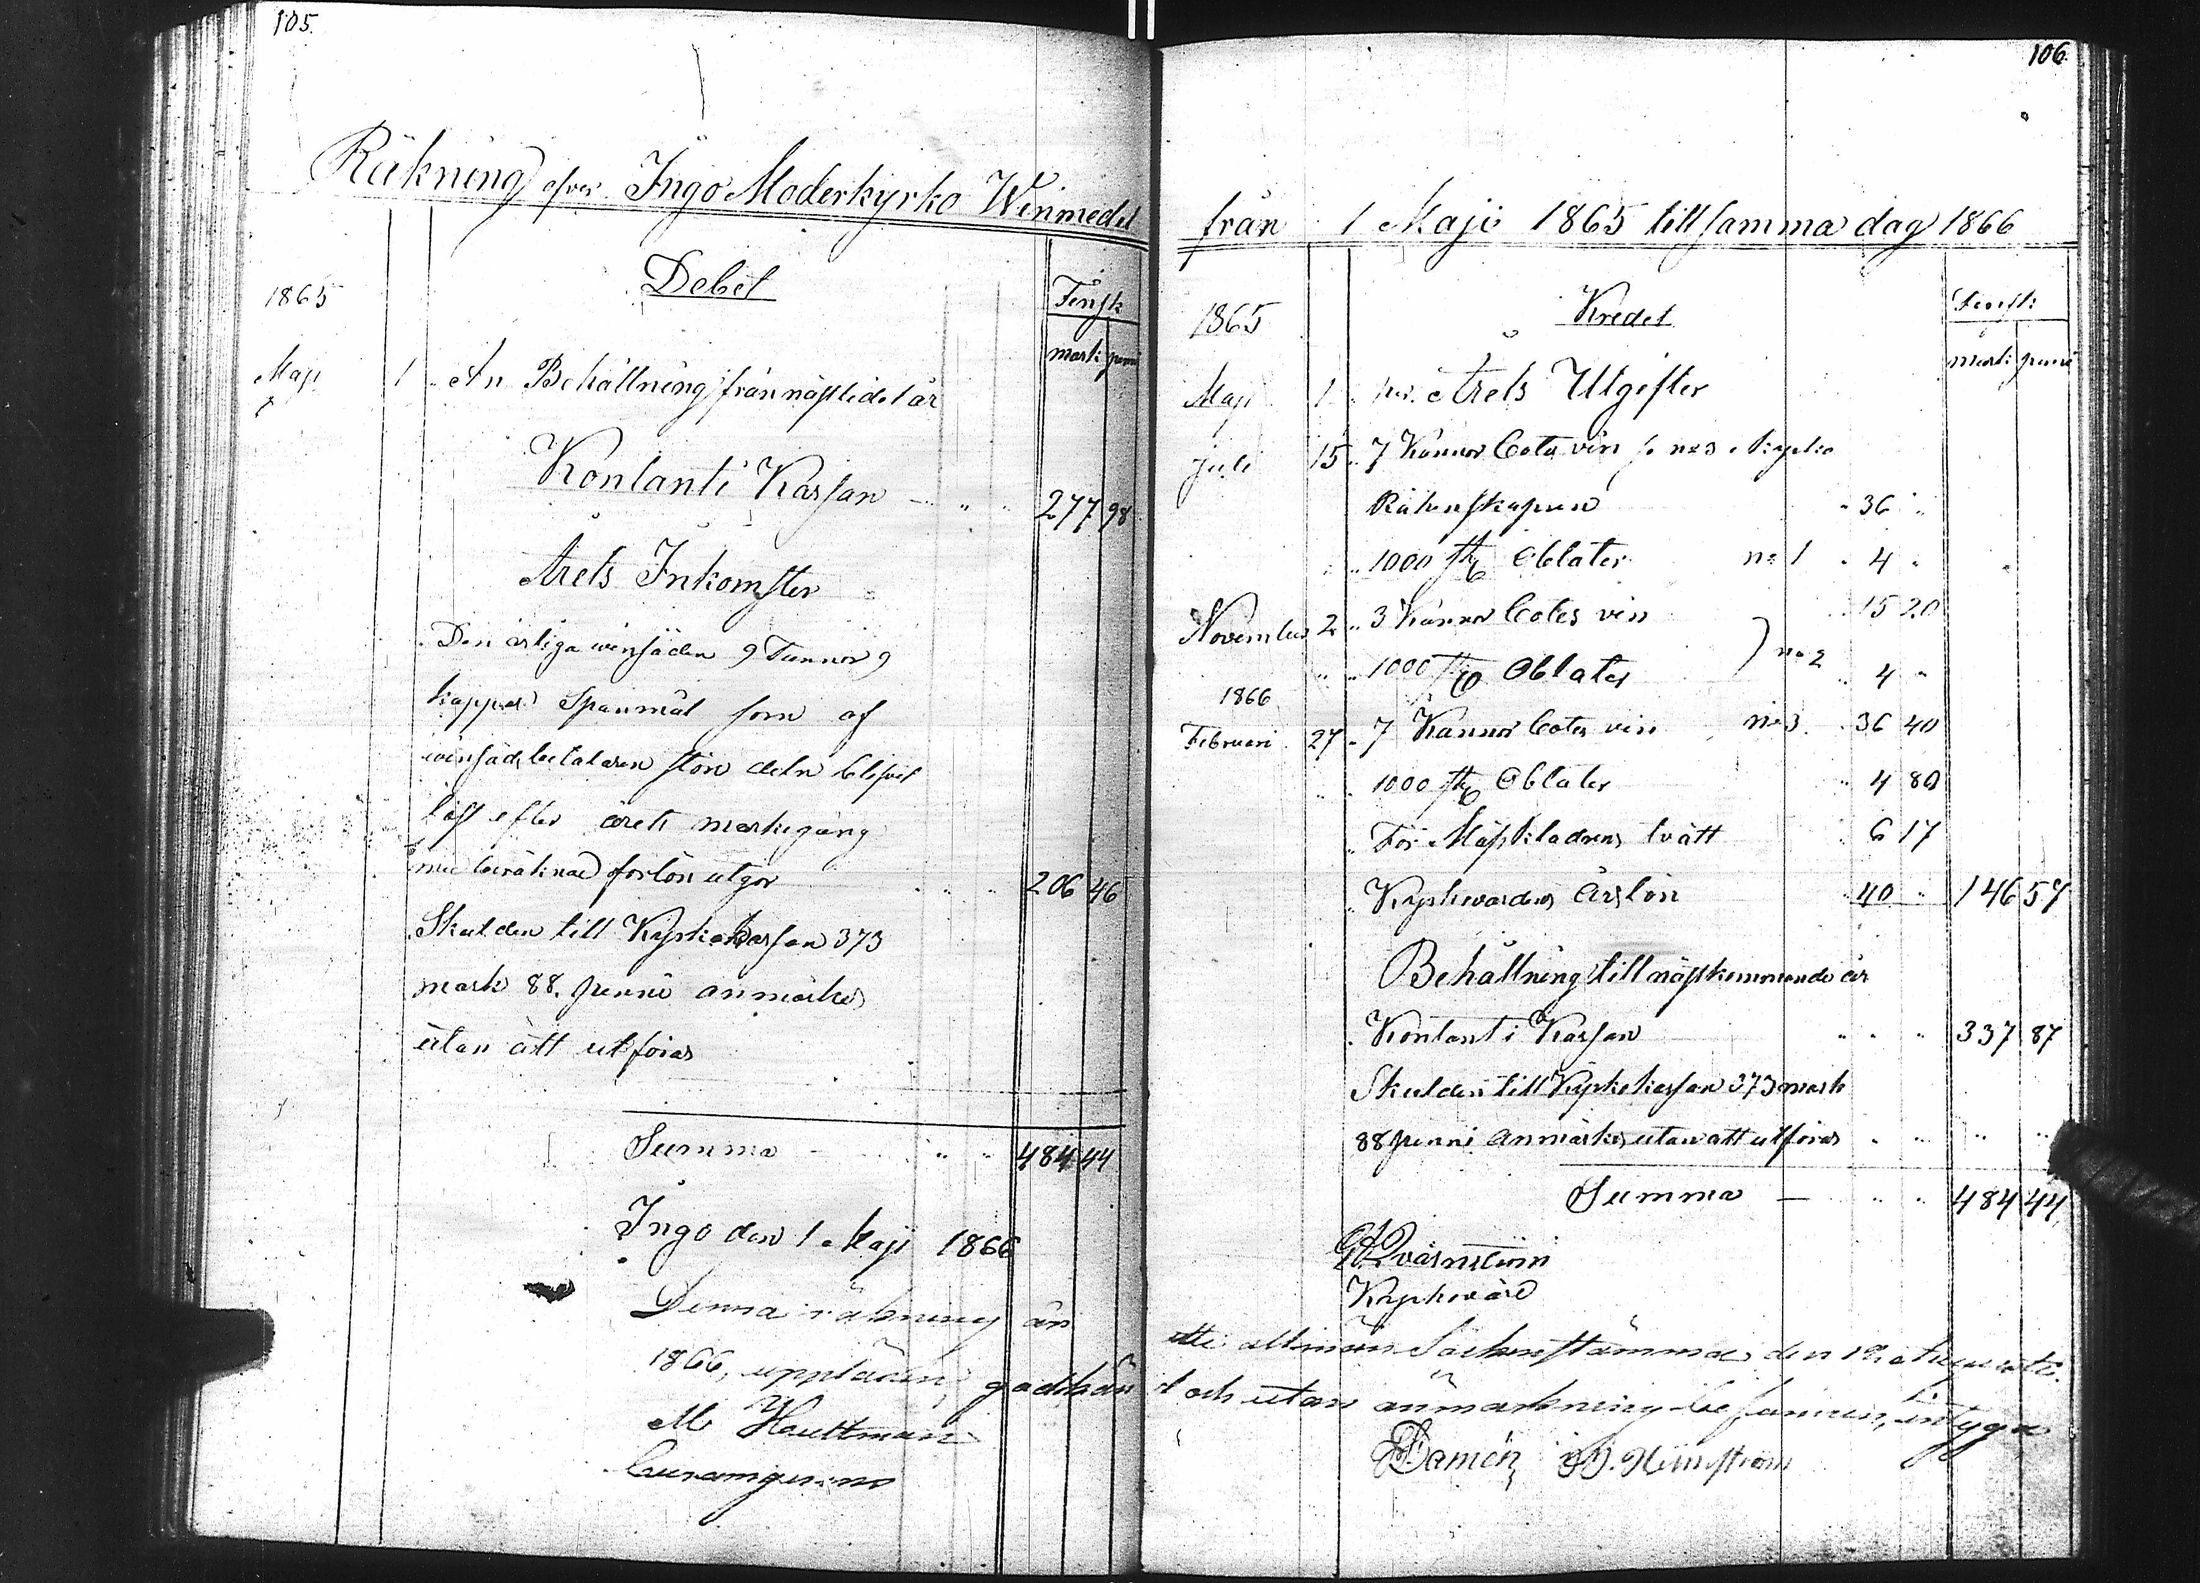 105.
Räkning öfver Ingo Moderkyrko Winmedel
Debet
Finsk
mark penni
1865
Maji 1 An Behållning från nästlidet år
Kontant i Kassan 277 98
Årets Inkomster
Den årliga winsäden 9 Tunnor 9
kappar Spanmål som af
winsäd betalaren sjön deln blifvit
löst efter årets markegång
med beräknad forlön utgör 206 46
Skulden till Kyrkokassan 373
mark 88 penni anmärkes
utan att utföras
Summa 484 44
Ingo den 1 Maji 1866
Denna räkning är
1866, uppläsen, godkän
M Hauttman
106.
från 1 Maji 1865 till samma dag 1866
Kredet
Finsk
mark penni
1865
Maji 1 per Årets Utgifter
Juli 15 7 Kannor Cotes vin no 3 kyrko
Räkenskapen 36
1000 st Oblater no 1 4
November 2 3 Kannor Cotes vin 15 20
1000 st Oblater no 2 4
1866
Februari 27 7 Kannor Cotes vin no 3 36 40
1000 st Oblater 4 80
För Mässklädrens tvätt 6 17
Kyrkvärdens Årslön 40 146 57
Behållning till nästkommande år
Kontant i Kassan 337 87
Skulden till Kyrkokassan 373 mark
88 penni anmärkes utan att utföras
Summa 484 44
Qvarnström
Kyrkvärd
allmän Sockenstämma den
t och utan anmärkning befunnen, intyga
Damén